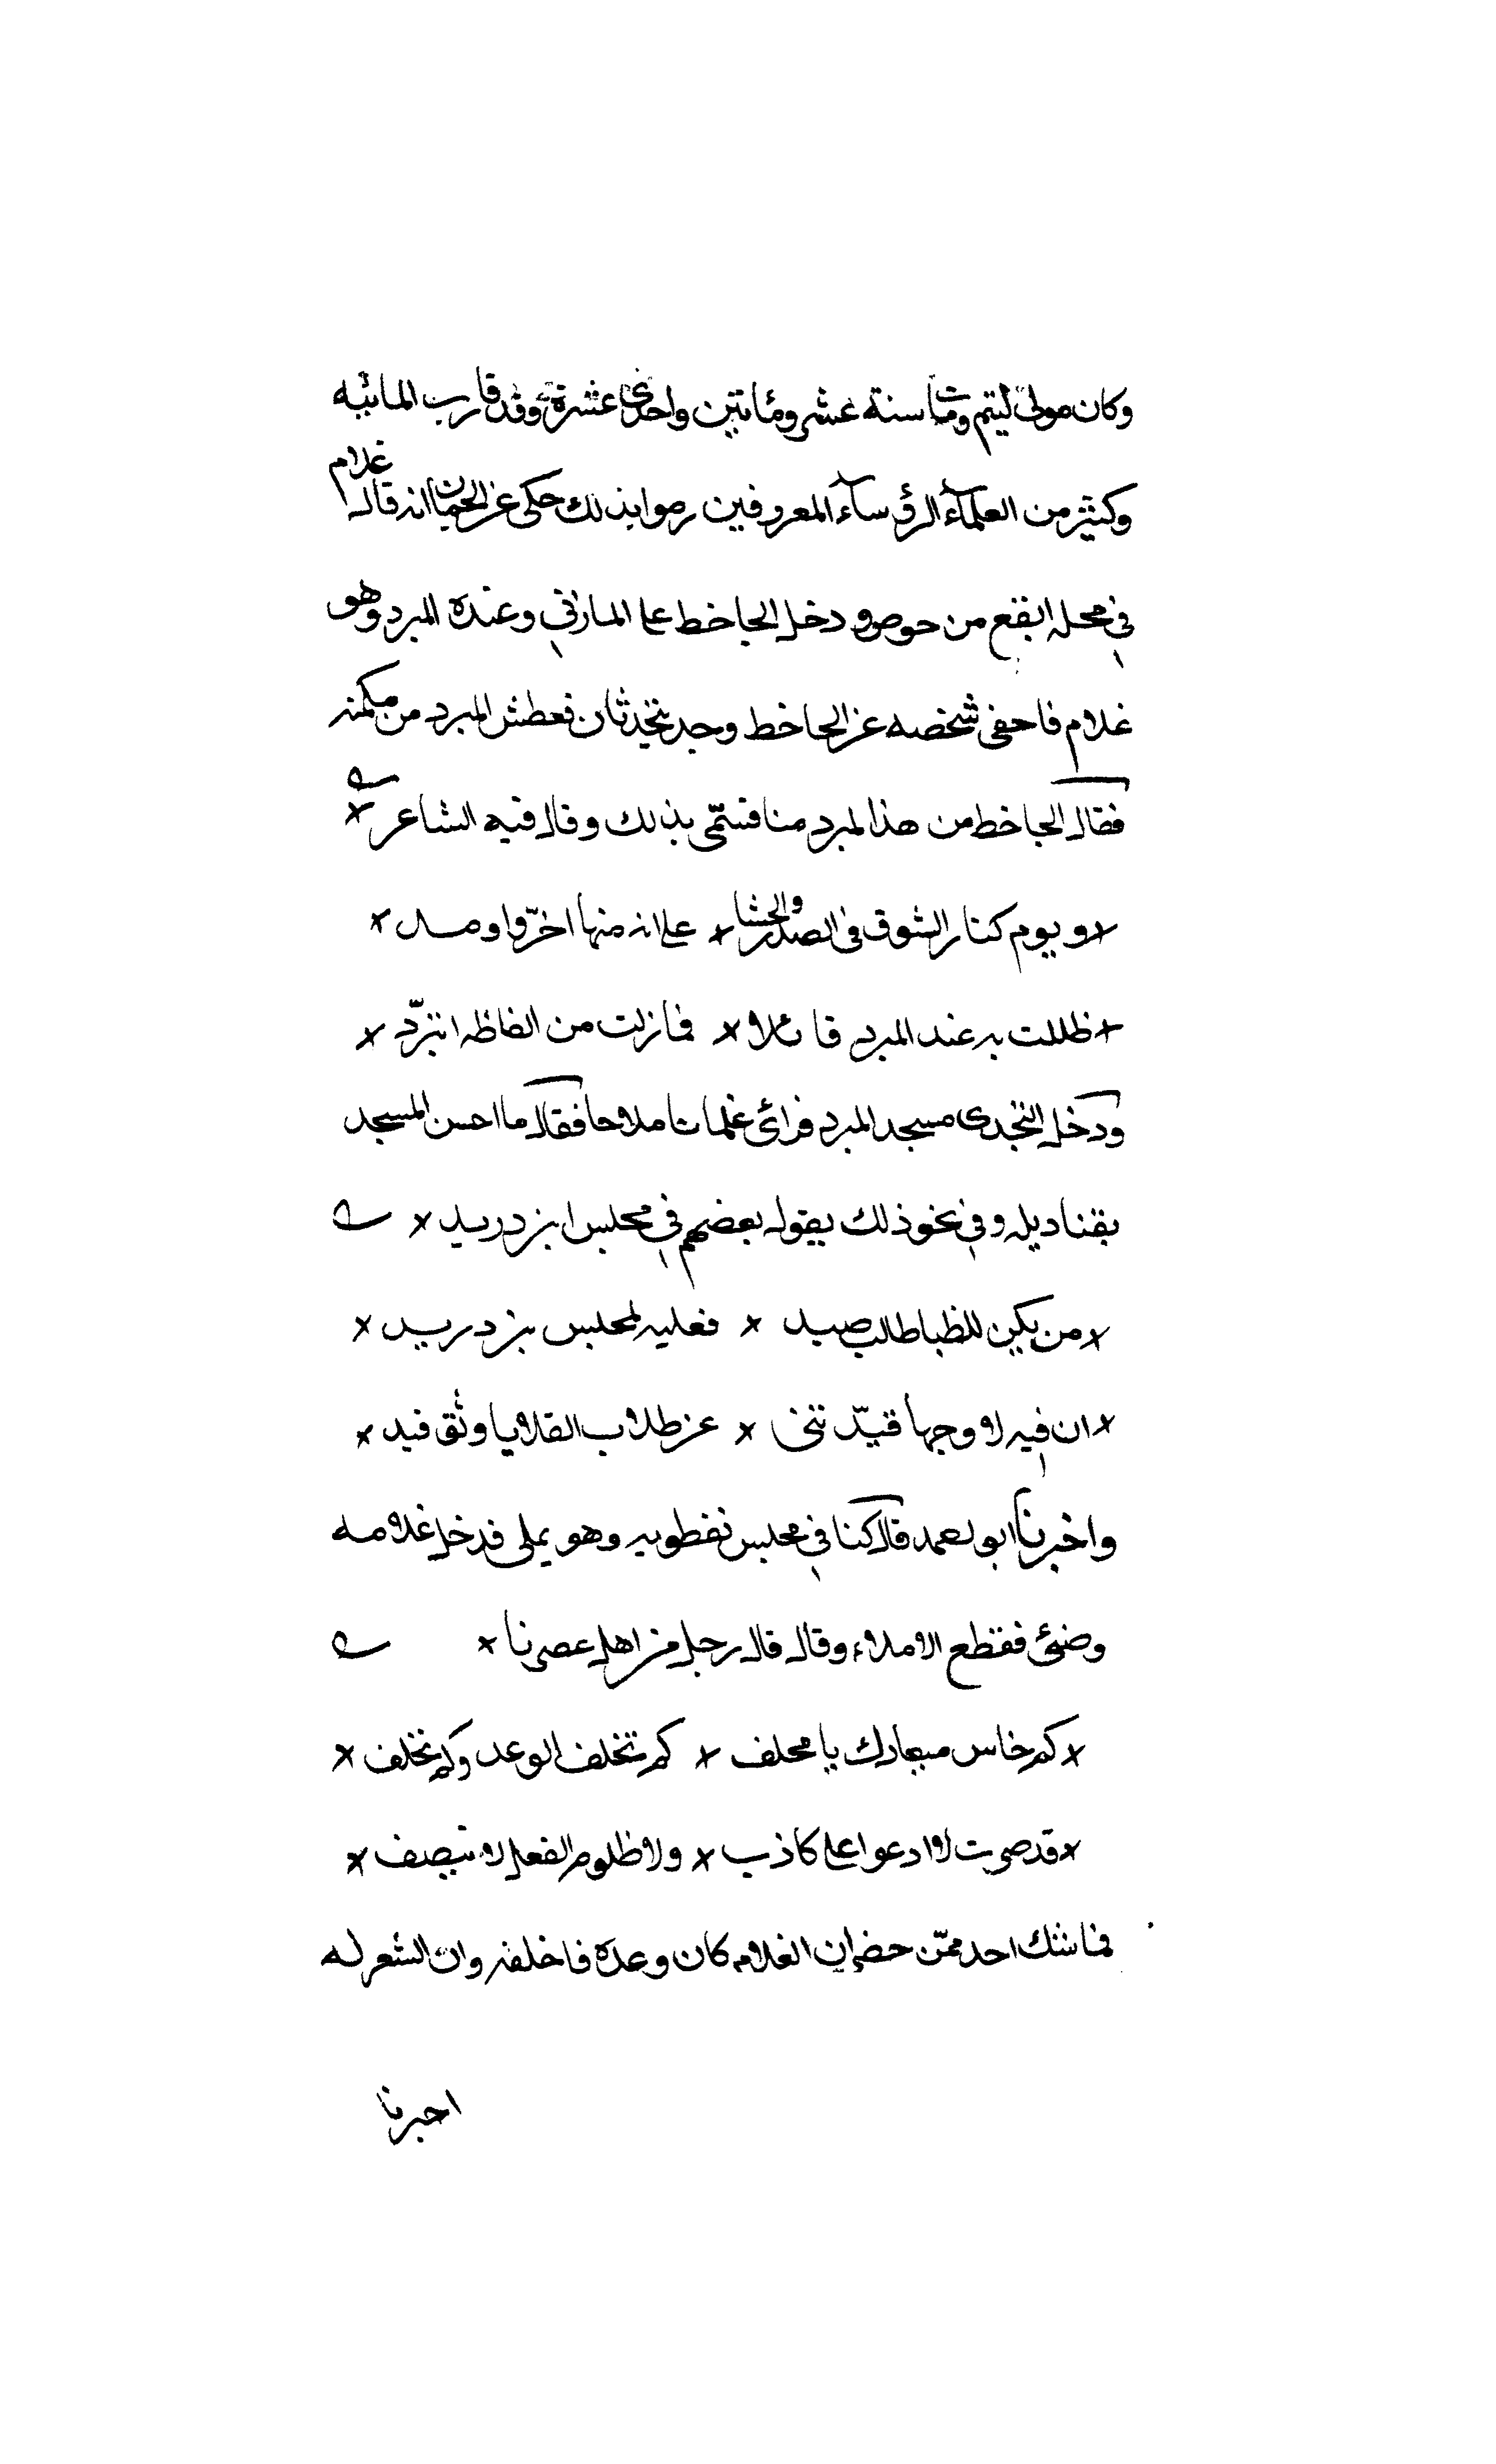 وكان مولى ليتم ومات سنة عشر ومائتين واحدى عشرة وقد قارب المائيه
وكثير من العلمآء الرؤسآء المعروفين رموا بذلك حكى عن الحمان انه قال غلام
في محله انفع من حوصو دخل الجاخط على المازني وعنده المبرد وهو
غلام فاحفى شخصه عن الجاخط وجد يتحدثان فعطش المبرد من مكمنه
فقال الجاخط من هذا المبرد منا فسمّى بذلك وقال فيه الشاعر ×
× ويوم كنار الشوق فى الصدر والحشا × على انه منها احرّ واومد ×
× ظللت به عند المبرد قائلا × فمازلت من الفاظه اتبرّد ×
ودخل النجدى مسجد المبرد فرائ غلمانا ملاحا فقال ما احسن المسجد
بقناديله وفي نحو ذلك يقول بعضهم في مجلس ابن دريد ×
× من يكن للظبا طالب صيد × فعليه لمجلس بن دريد ×
× ان فيه لاوجها قيّدتنى × عن طلاب القلايا وثق قيد ×
واخبرنا ابو لعمد قال كنا في مجلس نفطويه وهو يملى فدخل غلامه
وضئ فقطع الاملاء وقال قال رجل من اهل عصرنا ×
× كم خاس ميعادك يا مخلف × كم تخلف الوعد وكم تخلف ×
× قد صرت لا ادعوا على كاذب × ولا ظلوم الفعل لا ينصف ×
فما شك احد ممّن حضر ان الغلام كان وعده فاخلفه وان الشعر له
اخبرنا